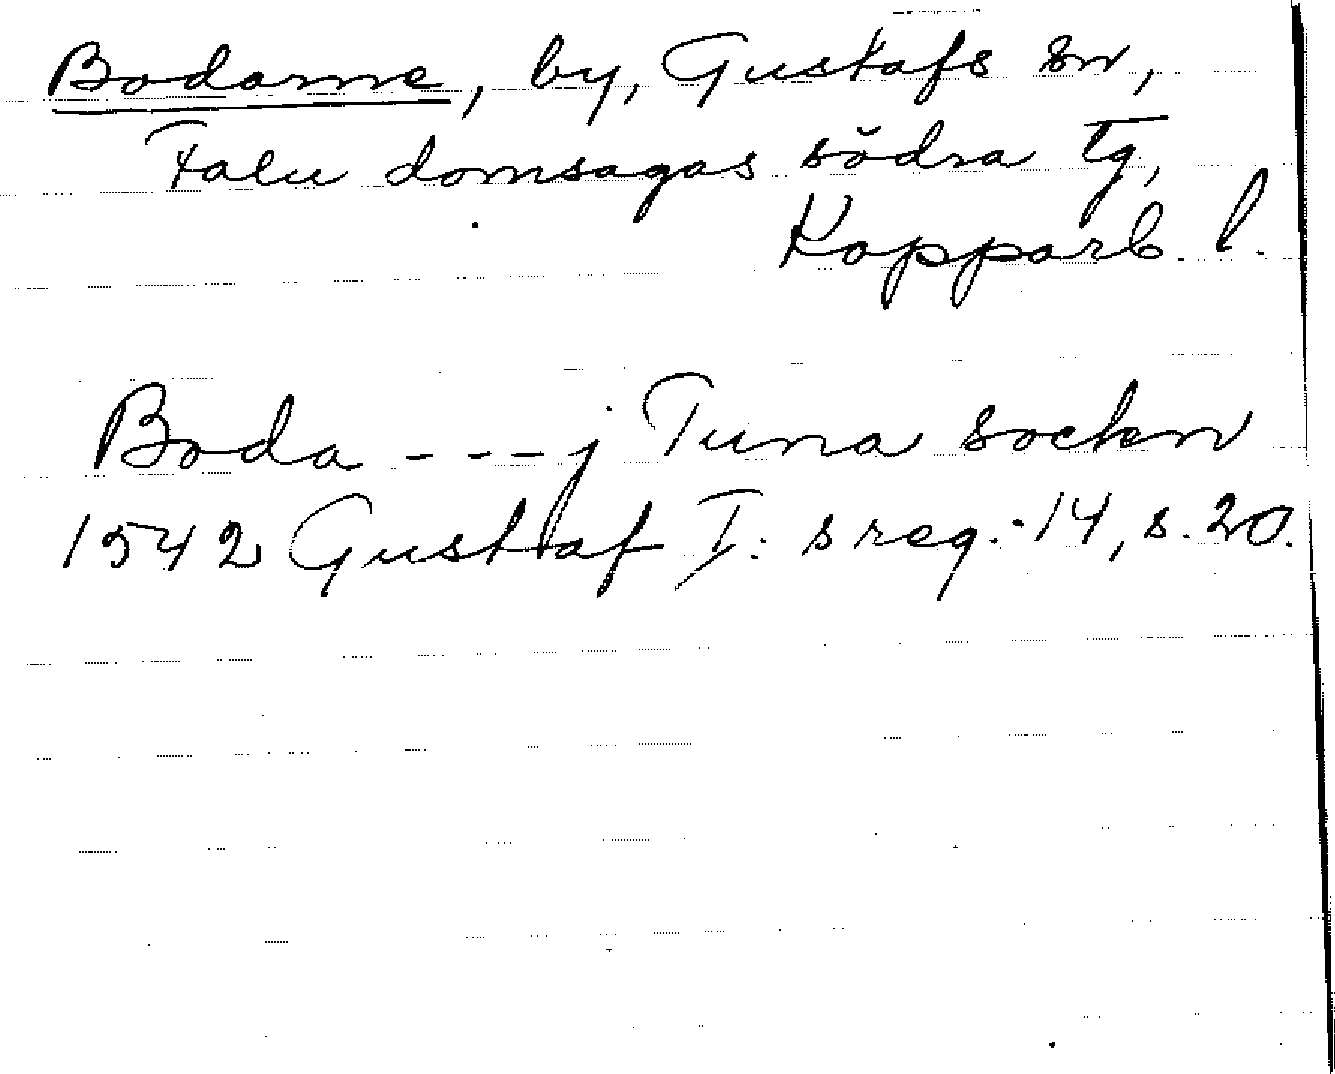 Bodarne, by, Gustafs sn,
Falu domsagas södra tg,
Kopparb. l.
Boda - - - j Tuna socken
1542 Gustaf I: s reg. 14, s. 20.